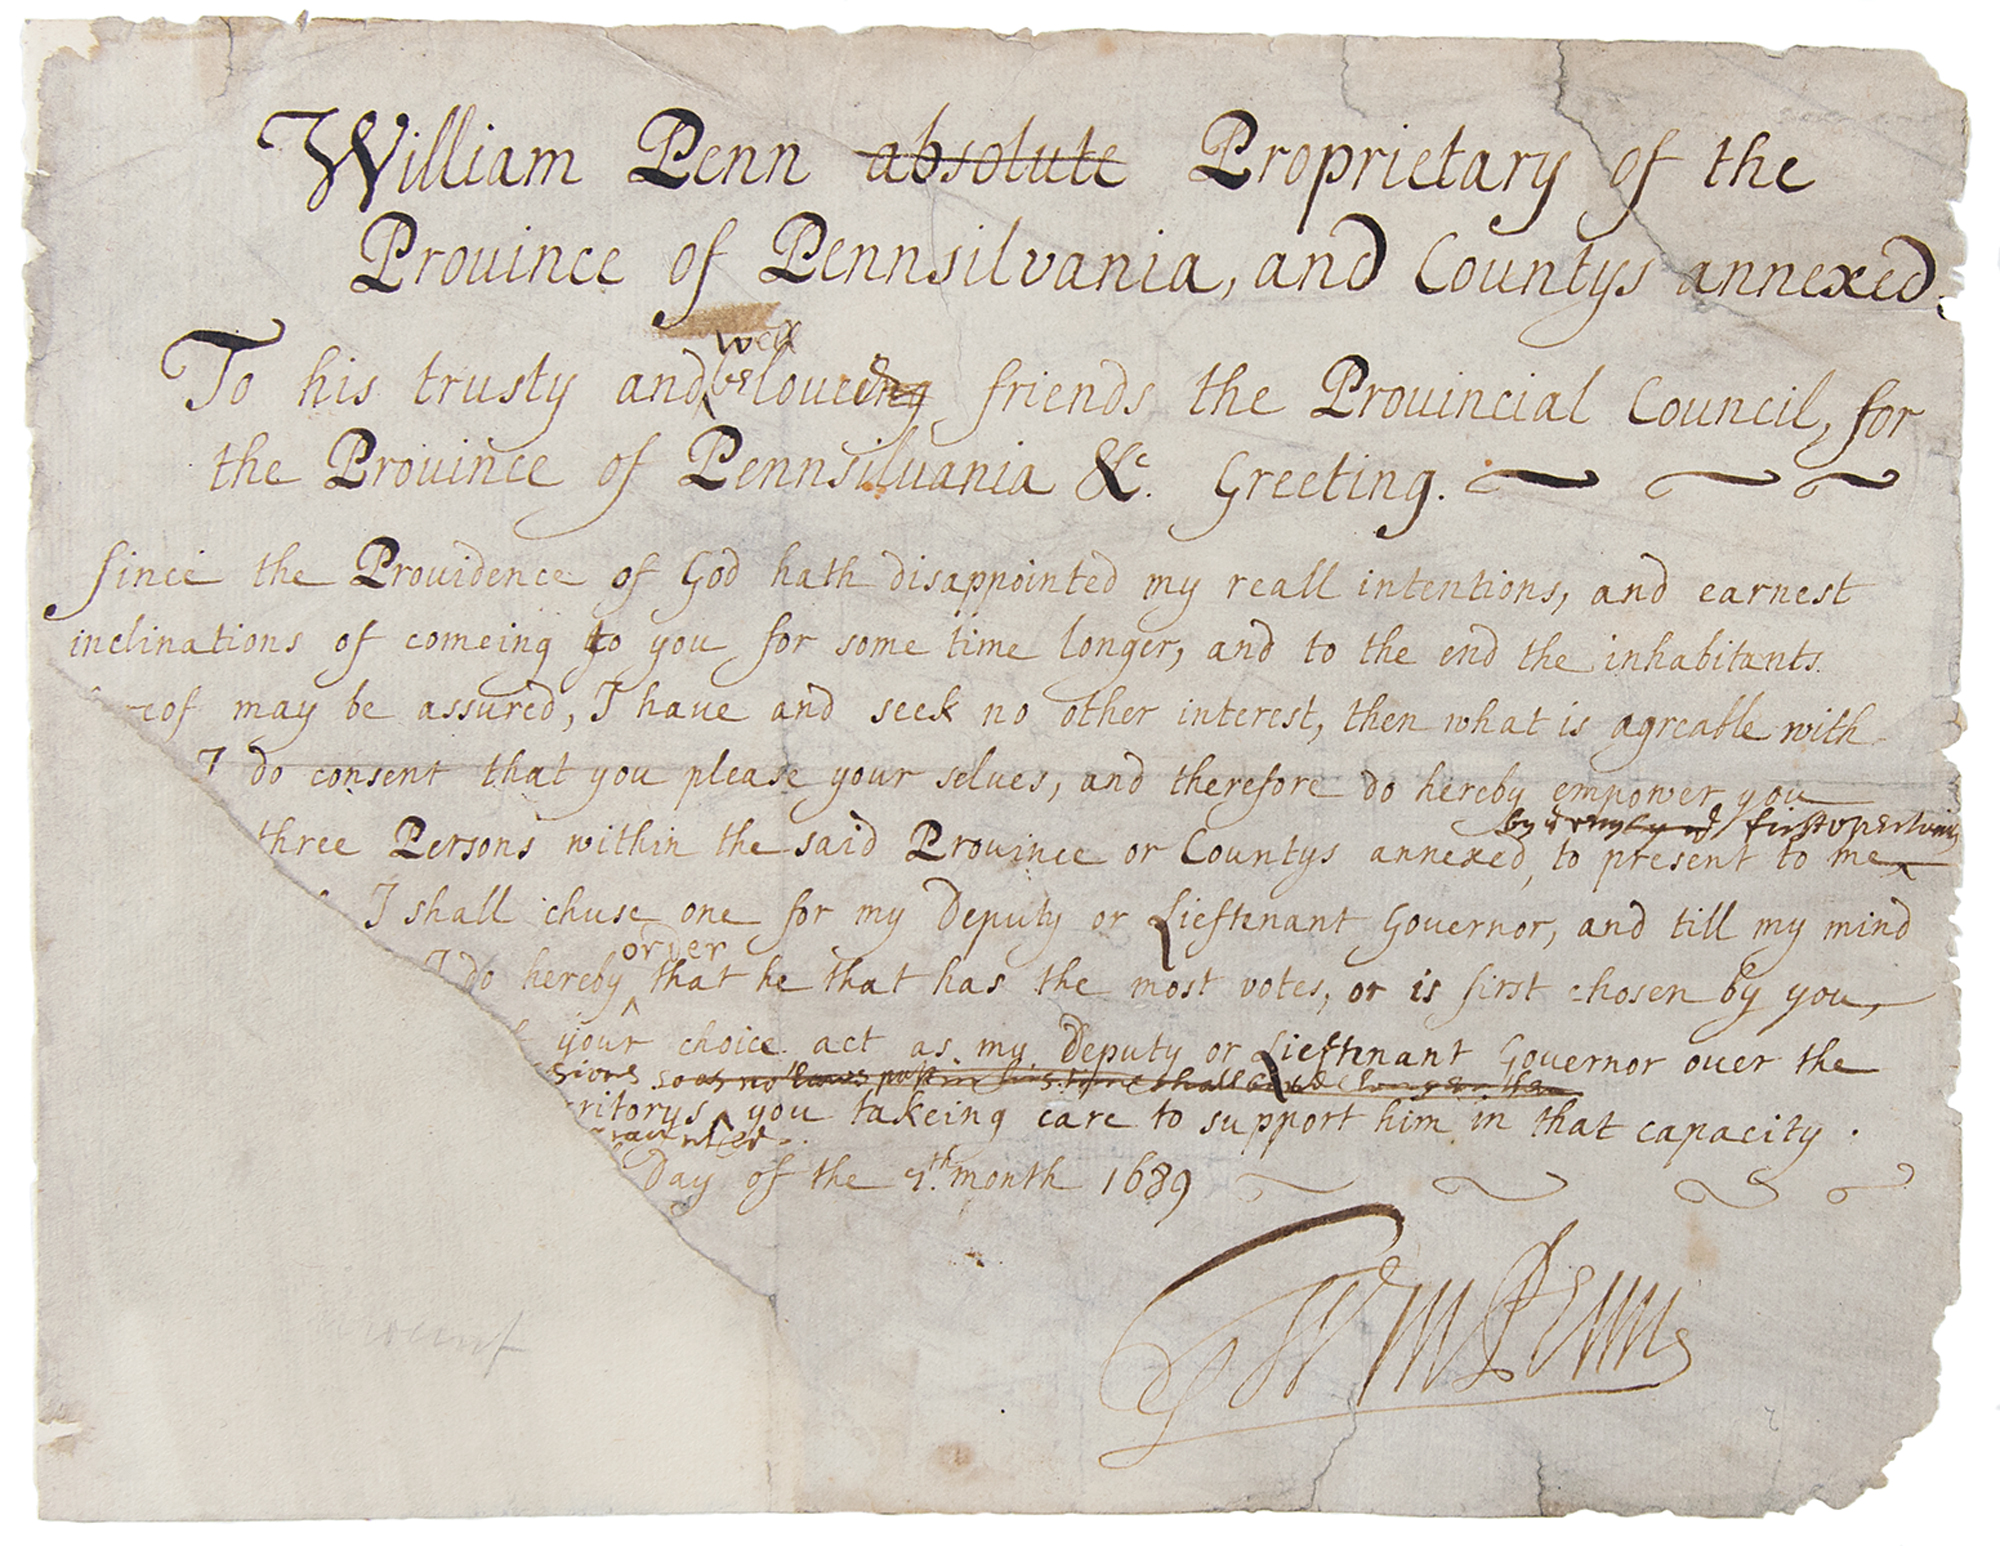 William Penn absolute Proprietary of the
Prouince of Pennsilvania, and Countys annexed.
well
To his trusty and beloueding friends the Prouincial Council, for
the Prouince of Pennsiluania &c. Greeting.
Since the Prouidence of God hath disappointed my reall intentions, and earnest
inclinations of comeing to you for some time longer, and to the end the inhabitants
eof may be assured, I haue and seek no other interest, then what is agreable with
I do consent that you please your selues, and therefore do hereby empower you
by first opertunity
three Persons within the said Prouince or Countys annexed, to present to me
I shall chuse one for my Deputy or Lieftenant Gouernor, and till my mind
order
I do hereby that he that has the most votes, or is first chosen by you,
your choice act as my Deputy or Lieftenant Gouernor ouer the
sions so as no laws past in his time shall be longer than
ritorys you takeing care to support him in that capacity.
Day of the 7th month 1689
Wm Penn